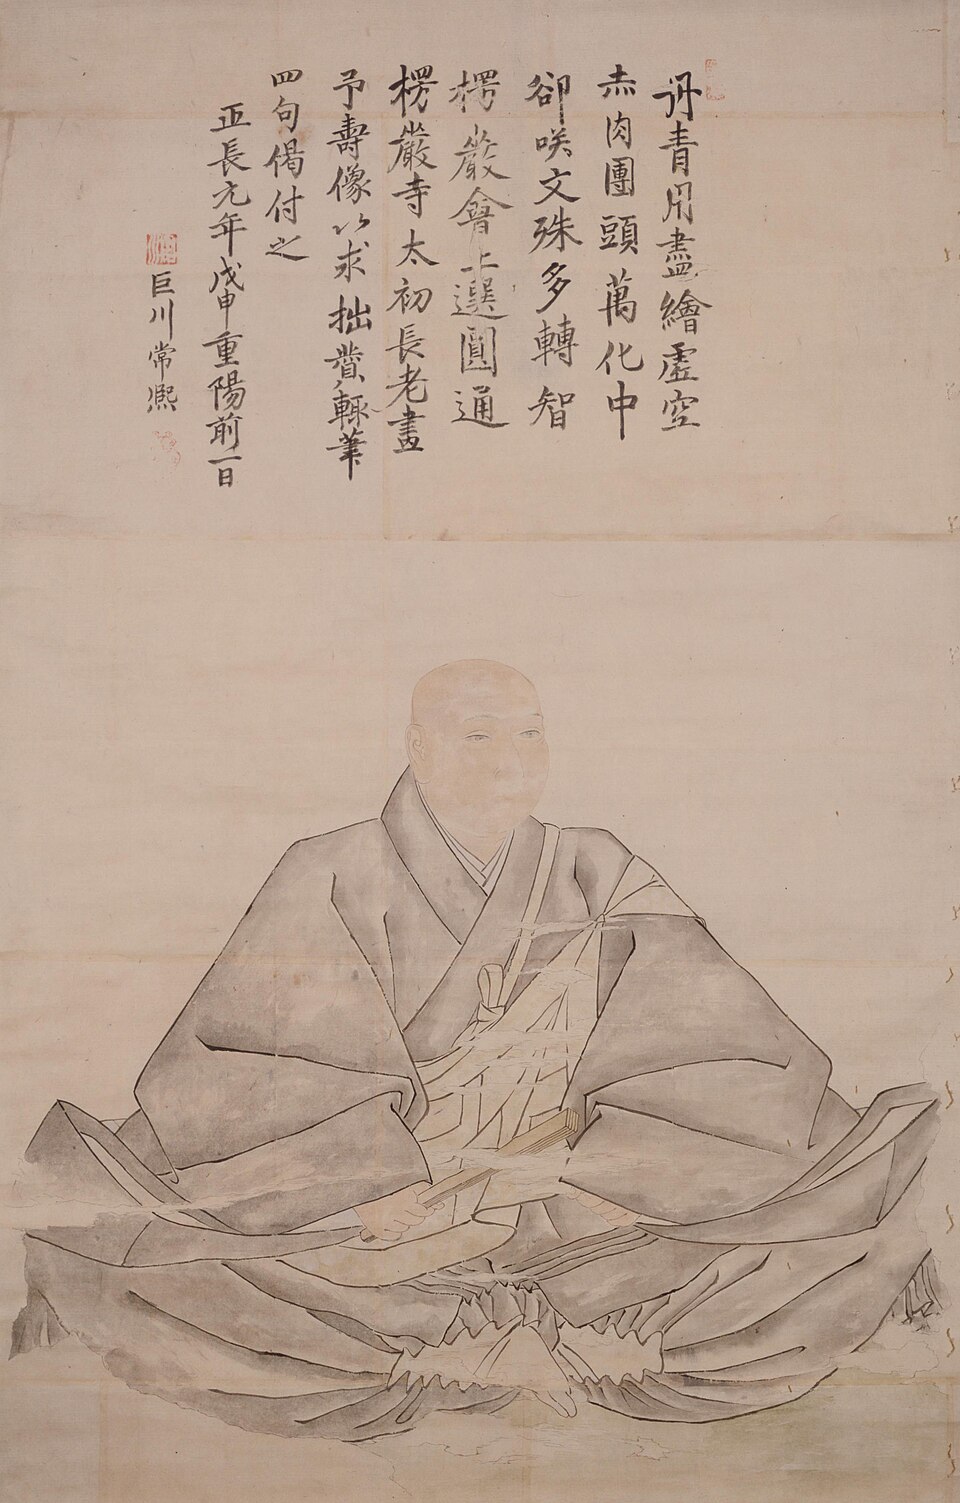 丹青用盡繪虛空
赤肉團頭萬化中
卻咲文殊多轉智
楞嚴會上選圓通
楞嚴寺太初長老畫
予壽像以求拙賛輙筆
四句偈付之
正長元年戊申重陽前一日
巨川常熈